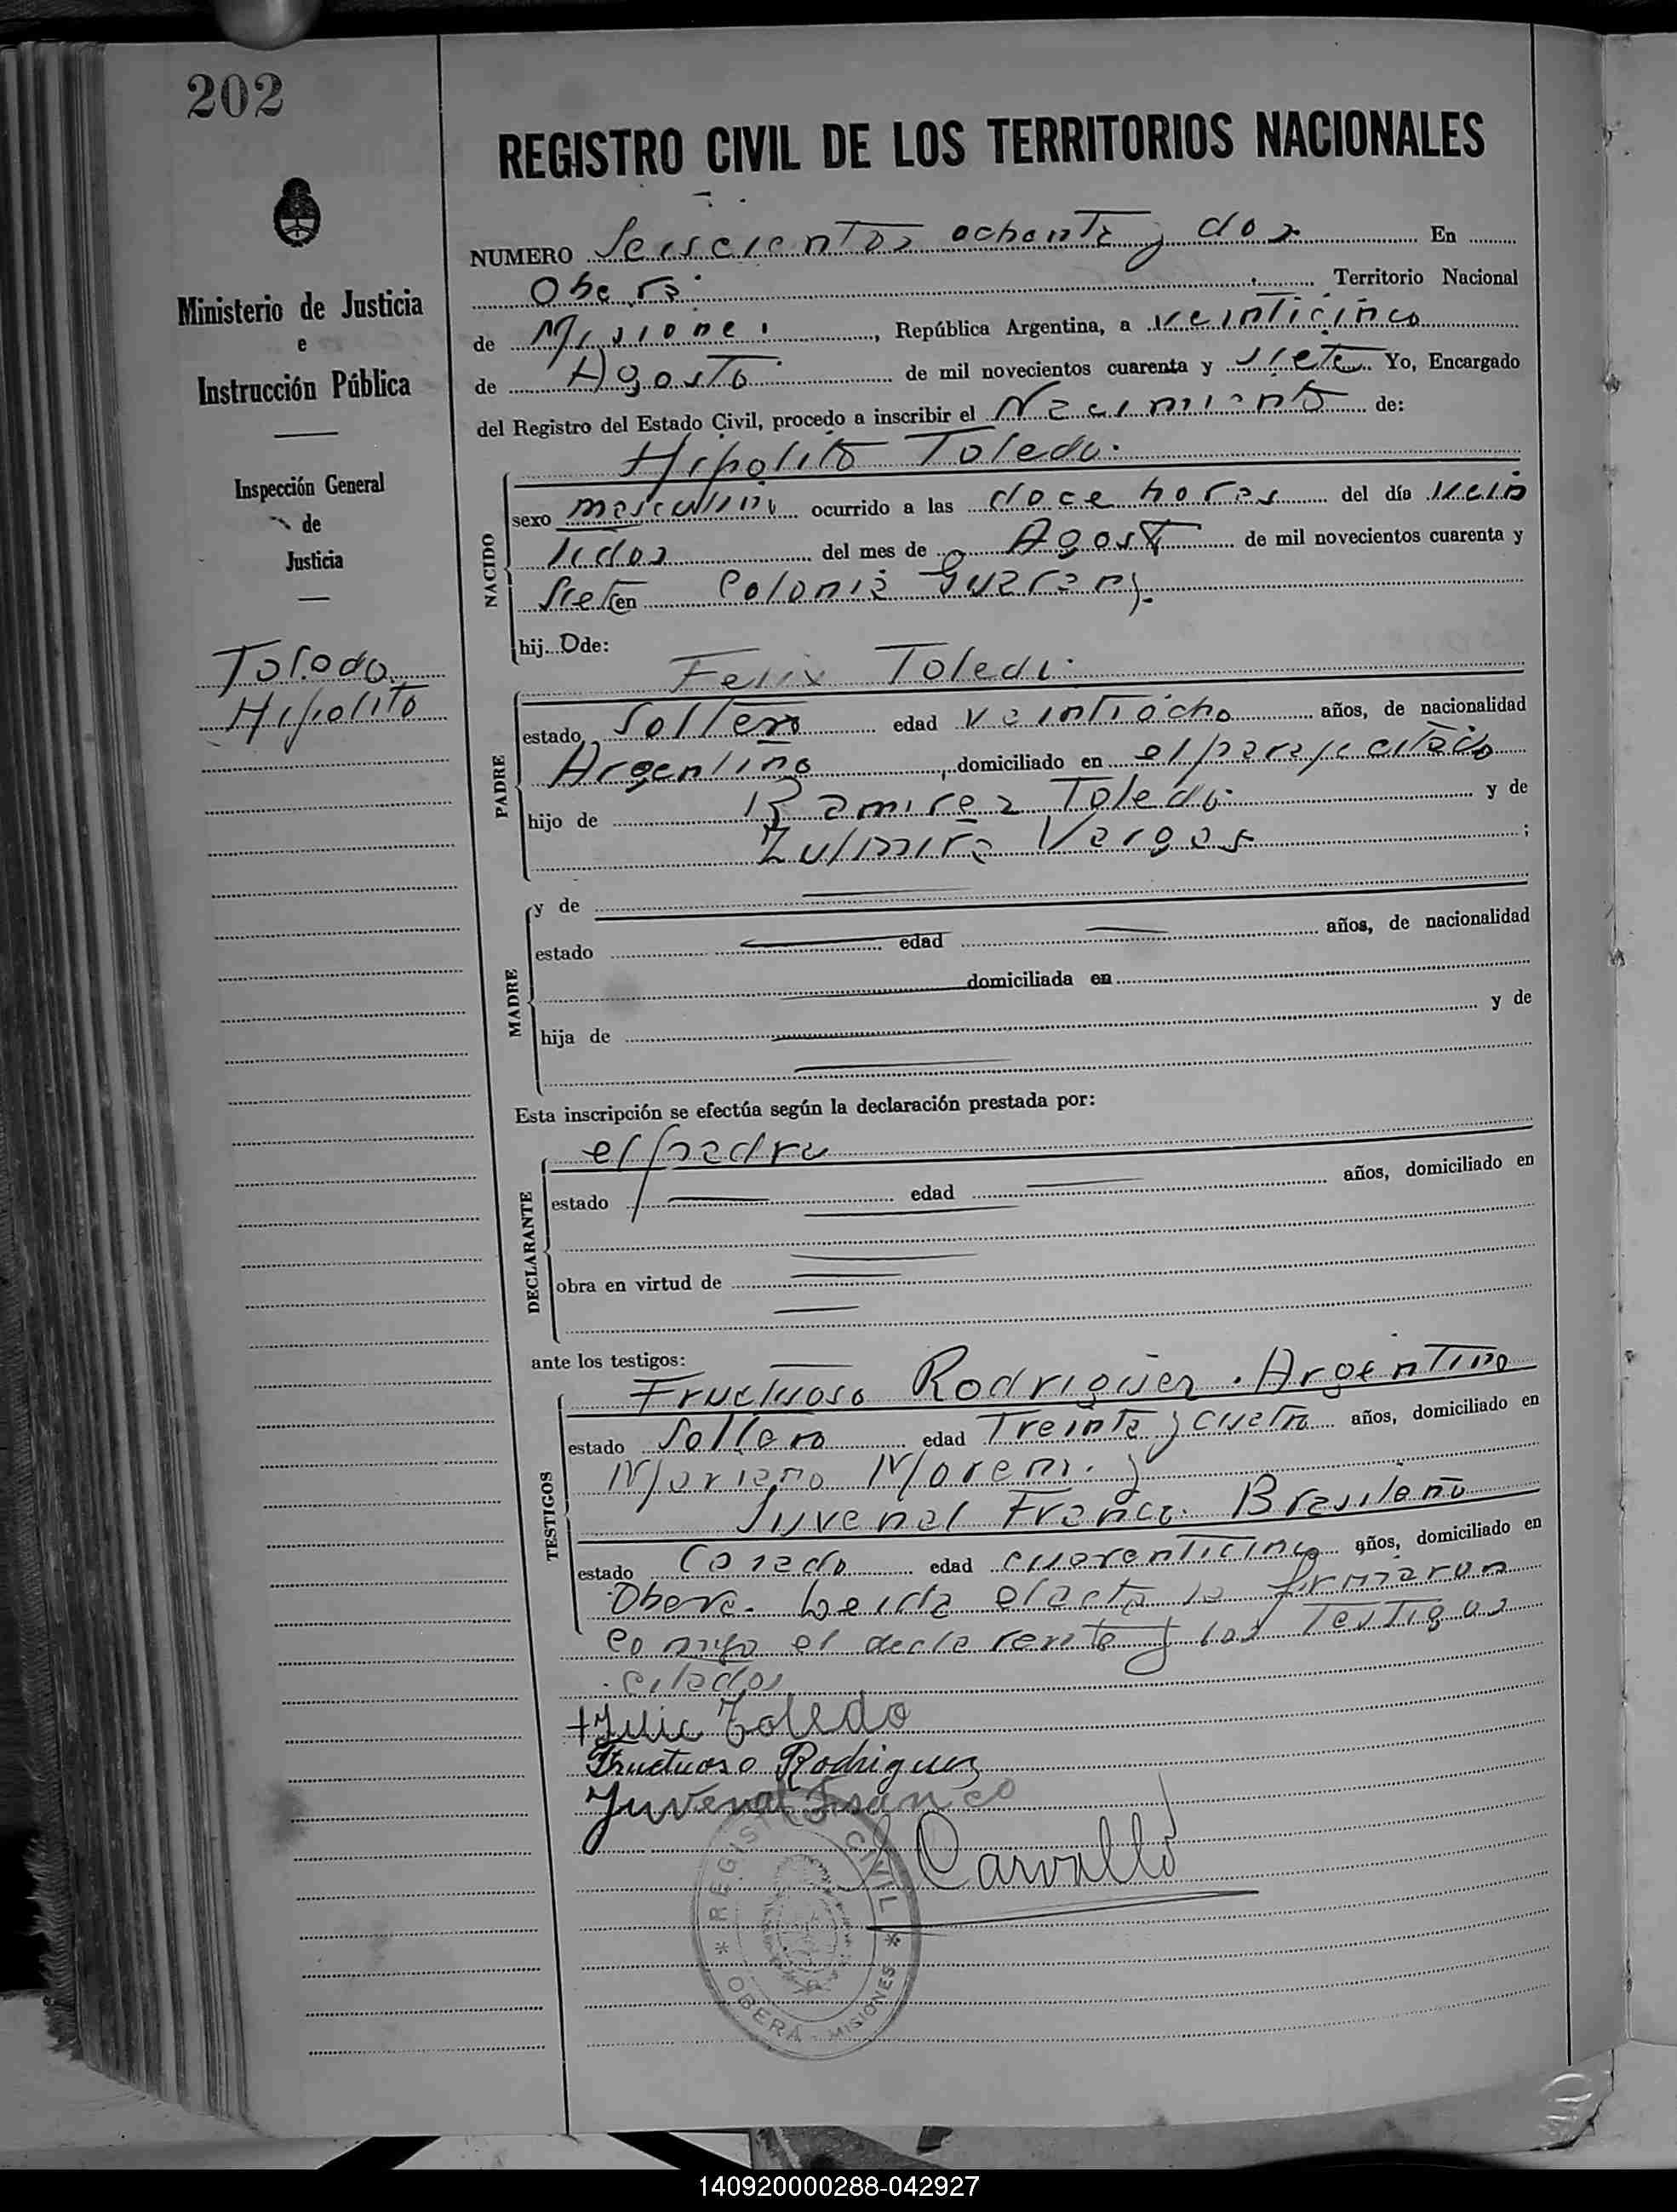 202
REGISTRO CIVIL DE LOS TERRITORIOS NACIONALES
Ministerio de Justicia
e
Instrucción Pública
Inspección General
de
Justicia
Toledo
Hipolito
NUMERO Seiscientos ochenta y dos En
Obera Territorio Nacional
de Misiones, República Argentina, a veinticinco
de Agosto de mil novecientos cuarenta y siete Yo, Encargado
del Registro del Estado Civil, procedo a inscribir el Nacimiento de:
Hipolito Toledo.
NACIDO
sexo masculino ocurrido a las doce horas del día vein
tidos del mes de Agosto de mil novecientos cuarenta y
siete en Colonia Guarany.
hij o de:
Felix Toledo
PADRE
estado Soltero edad veintiocho años, de nacionalidad
Argentino, domiciliado en el paraje citado
hijo de Ramirez Toledo y de
Zulmira Vargas;
MADRE
y de
estado edad años, de nacionalidad
domiciliada en
hija de y de
Esta inscripción se efectúa según la declaración prestada por:
el padre
DECLARANTE
estado edad años, domiciliado en
obra en virtud de
ante los testigos:
Fructuoso Rodriguez. Argentino
TESTIGOS
estado Soltero edad Treinta y cuatro años, domiciliado en
Mariano Moreno. y
Juvenal Franco. Brasileño
estado Casado edad cuarenticinco años, domiciliado en
Obera. Leida el acta la firmaron
conmigo el declarante y los Testigos
citados
Toledo
Fructuoso Rodriguez
Juvenal Franco
Carvallo
* REGISTRO CIVIL *
OBERA - MISIONES
140920000288-042927